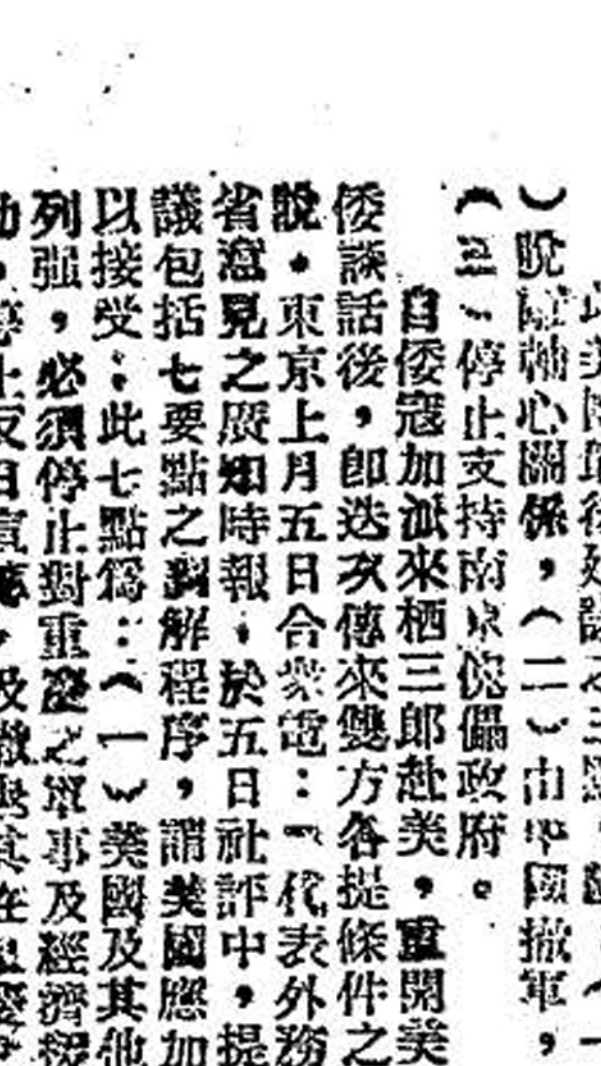 ）脫離軸心關係，（二）由中國撤軍，
（三）停止支持南京傀儡政府。
自倭寇加派來栖三郎赴美，重開美
倭談話後，卽迭次傳來雙方各提條件之
說。東京上月五日合衆電：「代表外務
省意見之廣知時報，於五日社評中，提
議包括七要點之調解程序，謂美國應加
以接受：此七點爲：（一）美國及其他
列强，必須停止對重慶之軍事及經濟援
動，停止反日宣傳，及撤